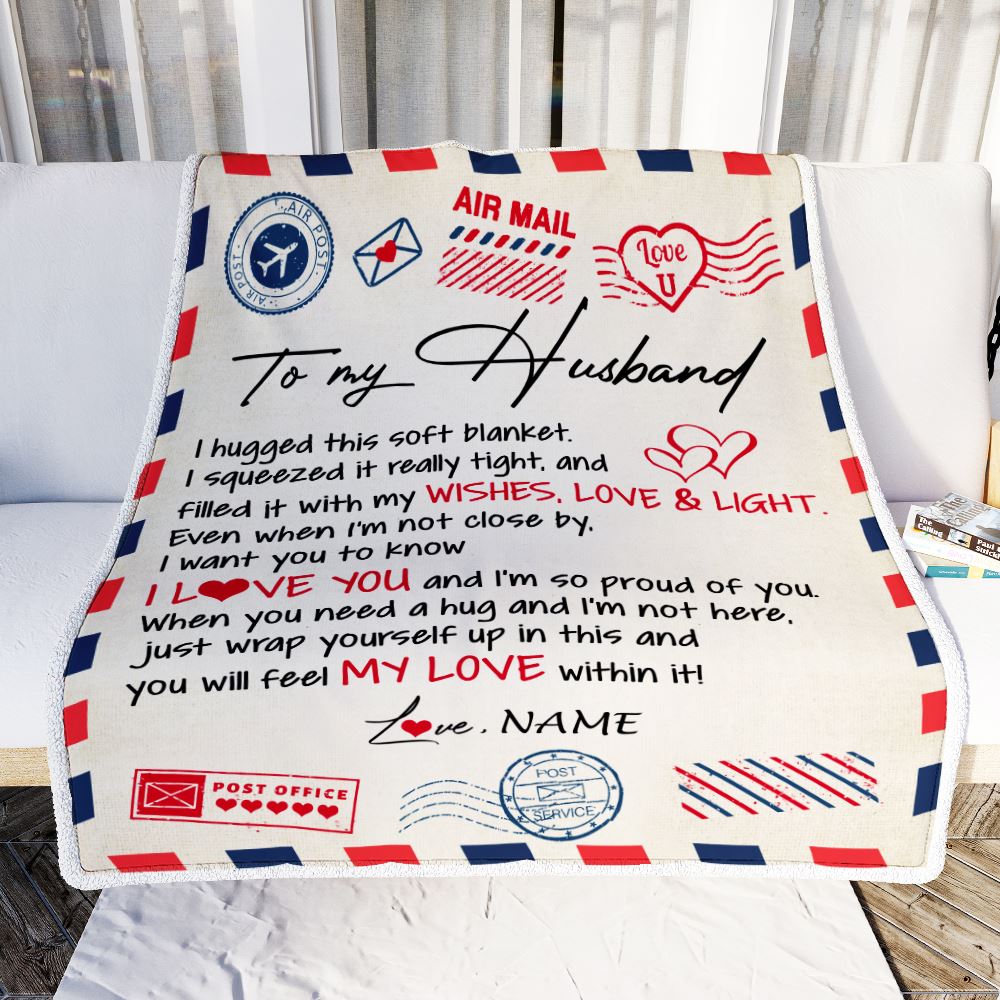 AIR POST
AIR POST
AIR MAIL
Love
U
To my Husband
I hugged this soft blanket.
I squeezed it really tight, and
filled it with my WISHES, LOVE & LIGHT.
Even when I'm not close by,
I want you to know
I L❤VE YOU and I'm so proud of you.
When you need a hug and I'm not here,
just wrap yourself up in this and
you will feel MY LOVE within it!
L❤ve, NAME
POST OFFICE
POST
SERVICE
The
Calling
Paul